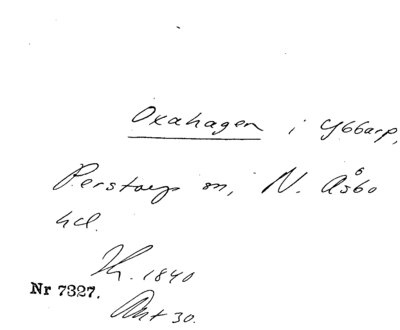 Oxahagen i Ybbarp,
Perstorp sn, N. Åsbo
hd.
Th. 1840
Nr 7327.
Akt 30.